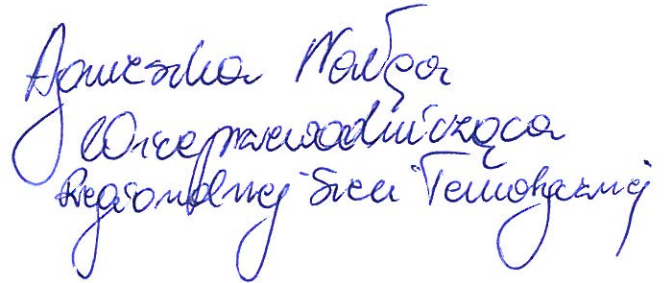 Agnieszka Wałęga
Wiceprzewodnicząca
Regionalnej Sieci Tematycznej